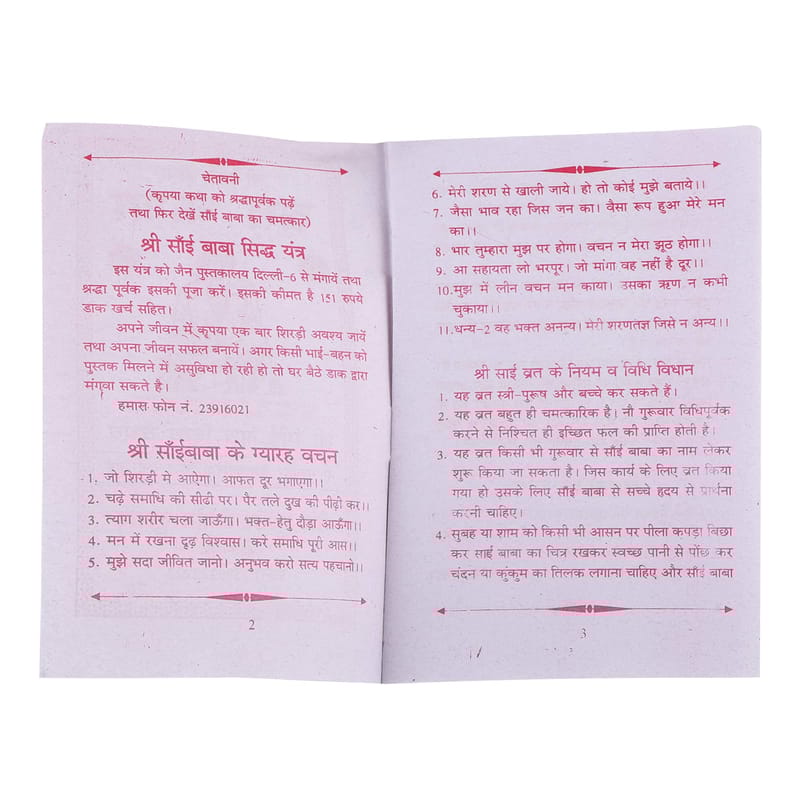 चेतावनी
(कृपया कथा को श्रद्धापूर्वक पढ़ें
तथा फिर देखें साँई बाबा का चमत्कार)
श्री साँई बाबा सिद्ध यंत्र
इस यंत्र को जैन पुस्तकालय दिल्ली-6 से मंगायें तथा
श्रद्धा पूर्वक इसकी पूजा करें। इसकी कीमत है 151 रुपये
डाक खर्च सहित।
अपने जीवन में कृपया एक बार शिरड़ी अवश्य जायें
तथा अपना जीवन सफल बनायें। अगर किसी भाई-बहन को
पुस्तक मिलने में असुविधा हो रही हो तो घर बैठे डाक द्वारा
मंगवा सकते है।
हमास फोन नं. 23916021
श्री साँईबाबा के ग्यारह वचन
1. जो शिरड़ी मे आऐगा। आफत दूर भगाएगा।।
2. चढ़े समाधि की सीढी पर। पैर तले दुख की पीढ़ी कर।।
3. त्याग शरीर चला जाऊँगा। भक्त-हेतु दौड़ा आऊँगा।।
4. मन में रखना दृढ़ विश्वास। करे समाधि पूरी आस।।
5. मुझे सदा जीवित जानो। अनुभव करो सत्य पहचानो।।
2
6. मेरी शरण से खाली जाये। हो तो कोई मुझे बताये।।
7. जैसा भाव रहा जिस जन का। वैसा रूप हुआ मेरे मन
का।।
8. भार तुम्हारा मुझ पर होगा। वचन न मेरा झूठ होगा।।
9. आ सहायता लो भरपूर। जो मांगा वह नहीं है दूर।।
10.मुझ में लीन वचन मन काया। उसका ऋण न कभी
चुकाया।।
11.धन्य-2 वह भक्त अनन्य। मेरी शरणतज्ञ जिसे न अन्य।।
श्री साई व्रत के नियम व विधि विधान
1. यह व्रत स्त्री-पुरूष और बच्चे कर सकते हैं।
2. यह व्रत बहुत ही चमत्कारिक है। नौ गुरूवार विधिपूर्वक
करने से निश्चित ही इच्छित फल की प्राप्ति होती है।
3. यह व्रत किसी भी गुरूवार से साँई बाबा का नाम लेकर
शुरू किया जा सकता है। जिस कार्य के लिए व्रत किया
गया हो उसके लिए साँई बाबा से सच्चे हृदय से प्रार्थना
करनी चाहिए।
4. सुबह या शाम को किसी भी आसन पर पीला कपड़ा बिछा
कर साई बाबा का चित्र रखकर स्वच्छ पानी से पोंछ कर
चंदन या कुंकुम का तिलक लगाना चाहिए और साँई बाबा
3